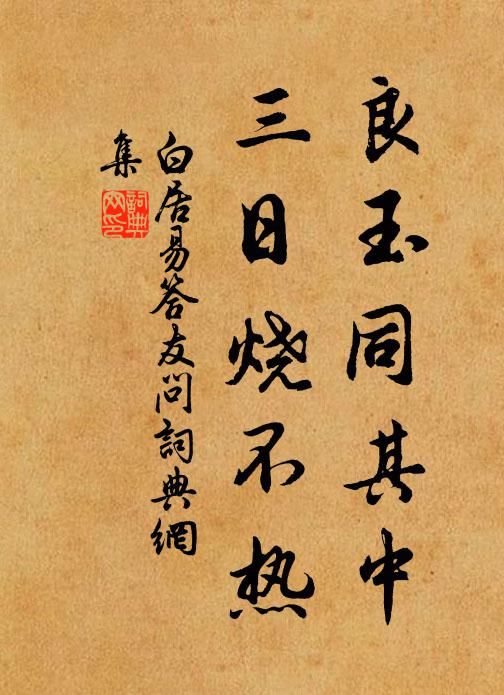 良玉同其中
三日烧不热
白居易答友问詞典網
集
詞典网印